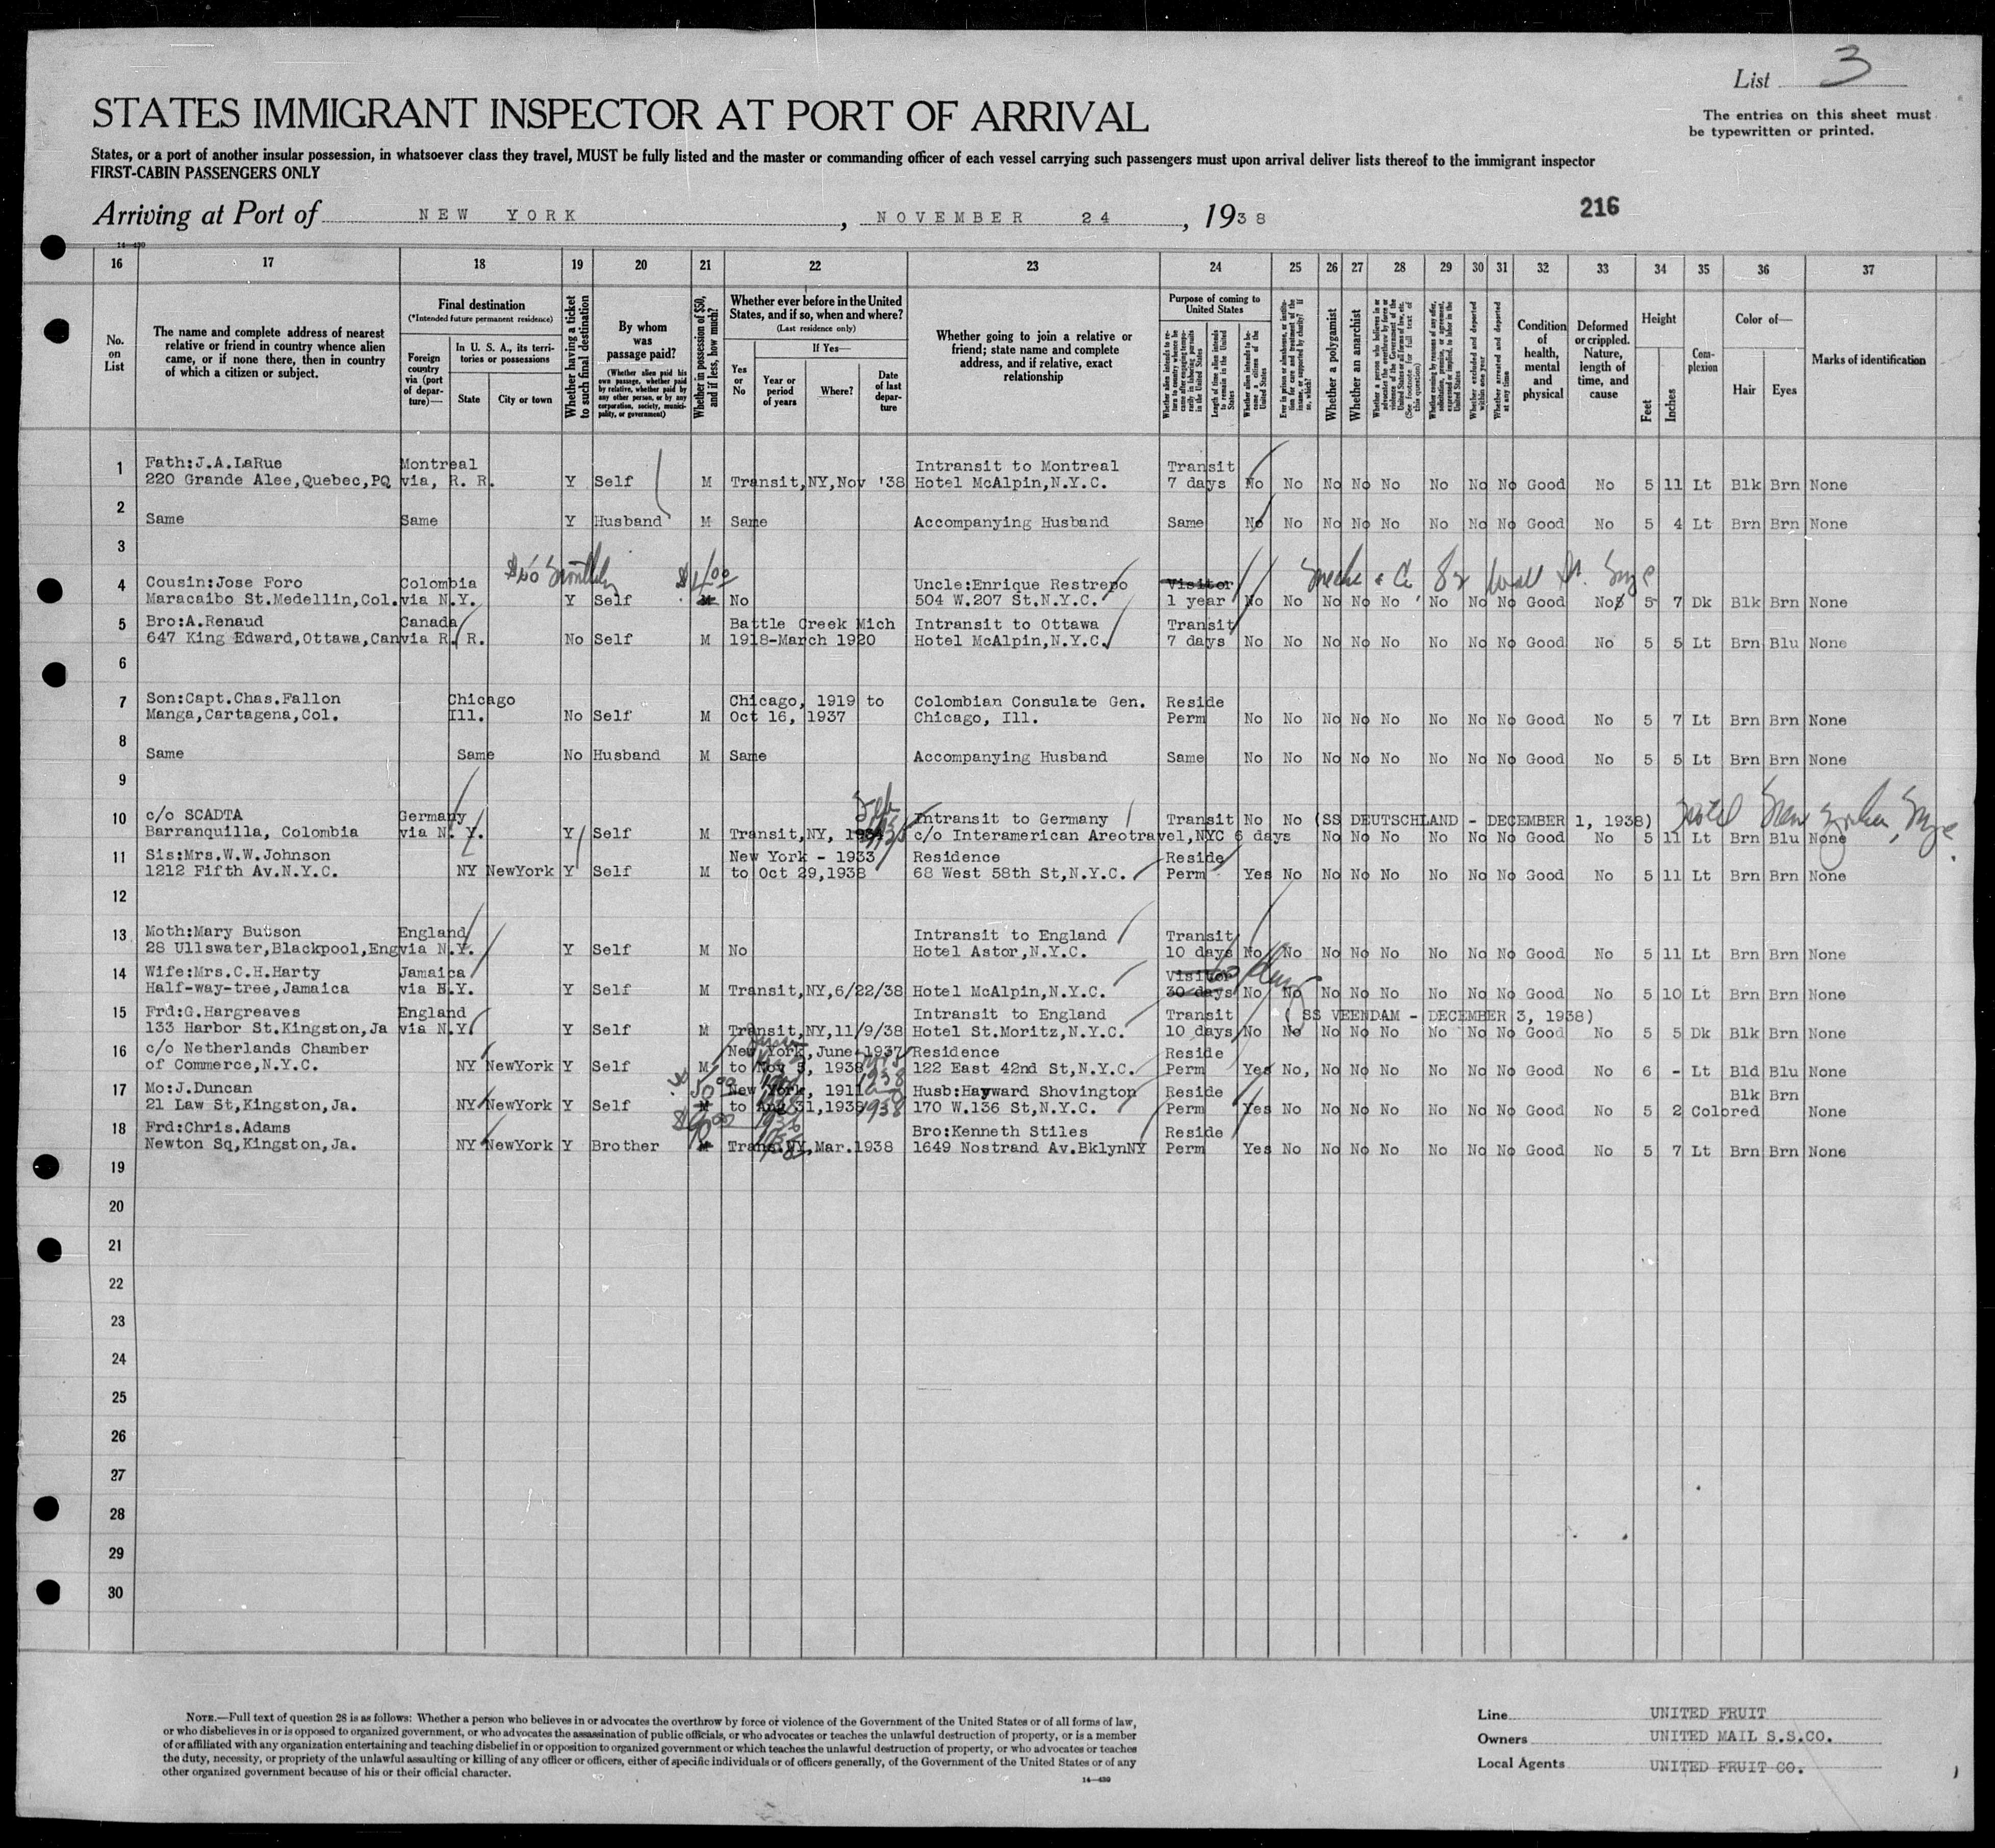 List 3
STATES IMMIGRANT INSPECTOR AT PORT OF ARRIVAL
The entries on this sheet must
be typewritten or printed.
States, or a port of another insular possession, in whatsoever class they travel, MUST be fully listed and the master or commanding officer of each vessel carrying such passengers must upon arrival deliver lists thereof to the immigrant inspector
FIRST-CABIN PASSENGERS ONLY
Arriving at Port of NEW YORK, NOVEMBER 24, 1938
216
14—430
16 17 18 19 20 21 22 23 24 25 26 27 28 29 30 31 32 33 34 35 36 37
No. on List
The name and complete address of nearest relative or friend in country whence alien came, or if none there, then in country of which a citizen or subject.
Final destination
(*Intended future permanent residence)
Foreign country via (port of departure)—
In U. S. A., its territories or possessions
State
City or town
Whether having a ticket to such final destination
By whom was passage paid?
(Whether alien paid his own passage, whether paid by relative, whether paid by any other person, or by any corporation, society, municipality, or government)
Whether in possession of $50, and if less, how much?
Whether ever before in the United States, and if so, when and where?
(Last residence only)
Yes or No
If Yes—
Year or period of years
Where?
Date of last departure
Whether going to join a relative or friend; state name and complete address, and if relative, exact relationship
Purpose of coming to United States
Whether alien intends to return to country whence he came after engaging temporarily in laboring pursuits in the United States
Length of time alien intends to remain in the United States
Whether alien intends to become a citizen of the United States
Ever in prison or almshouse, or institution for care and treatment of the insane, or supported by charity? If so, which?
Whether a polygamist
Whether an anarchist
Whether a person who believes in or advocates the overthrow by force or violence of the Government of the United States or all forms of law, etc. (See footnote for full text of this question)
Whether coming by reasons of any offer, solicitation, promise, or agreement, expressed or implied, to labor in the United States
Whether excluded and deported within one year
Whether arrested and deported at any time
Condition of health, mental and physical
Deformed or crippled. Nature, length of time, and cause
Height
Feet
Inches
Complexion
Color of—
Hair
Eyes
Marks of identification
1 Fath:J.A.LaRue Montreal Intransit to Montreal Transit
220 Grande Alee,Quebec,PQ via, R. R. Y Self M Transit,NY,Nov '38 Hotel McAlpin,N.Y.C. 7 days No No No No No No No No Good No 5 11 Lt Blk Brn None
2
Same Same Y Husband M Same Accompanying Husband Same No No No No No No No No Good No 5 4 Lt Brn Brn None
3
4 Cousin:Jose Foro Colombia Uncle:Enrique Restrepo Visitor
Maracaibo St.Medellin,Col. via N.Y. Y Self M No 504 W.207 St.N.Y.C. 1 year No No No No No No No No Good No 5 7 Dk Blk Brn None
5 Bro:A.Renaud Canada Battle Creek Mich Intransit to Ottawa Transit
647 King Edward,Ottawa,Can via R. R. No Self M 1918-March 1920 Hotel McAlpin,N.Y.C. 7 days No No No No No No No No Good No 5 5 Lt Brn Blu None
6
7 Son:Capt.Chas.Fallon Chicago Chicago, 1919 to Colombian Consulate Gen. Reside
Manga,Cartagena,Col. Ill. No Self M Oct 16, 1937 Chicago, Ill. Perm No No No No No No No No Good No 5 7 Lt Brn Brn None
8
Same Same No Husband M Same Accompanying Husband Same No No No No No No No No Good No 5 5 Lt Brn Brn None
9
10 c/o SCADTA Germany Intransit to Germany Transit No No (SS DEUTSCHLAND - DECEMBER 1, 1938)
Barranquilla, Colombia via N. Y. Y Self M Transit,NY, c/o Interamerican Areotravel,NYC 6 days No No No No No No Good No 5 11 Lt Brn Blu None
11 Sis:Mrs.W.W.Johnson New York - 1933 Residence Reside
1212 Fifth Av.N.Y.C. NY NewYork Y Self M to Oct 29,1938 68 West 58th St,N.Y.C. Perm Yes No No No No No No No Good No 5 11 Lt Brn Brn None
12
13 Moth:Mary Butson England Intransit to England Transit
28 Ullswater,Blackpool,Eng via N.Y. Y Self M No Hotel Astor,N.Y.C. 10 days No No No No No No No No Good No 5 11 Lt Brn Brn None
14 Wife:Mrs.C.H.Harty Jamaica Visitor
Half-way-tree,Jamaica via N.Y. Y Self M Transit,NY,6/22/38 Hotel McAlpin,N.Y.C. 30 days No No No No No No No No Good No 5 10 Lt Brn Brn None
15 Frd:G.Hargreaves England Intransit to England Transit ( SS VEENDAM - DECEMBER 3, 1938)
133 Harbor St.Kingston,Ja via N.Y. Y Self M Transit,NY,11/9/38 Hotel St.Moritz,N.Y.C. 10 days No No No No No No No No Good No 5 5 Dk Blk Brn None
16 c/o Netherlands Chamber New York,June 1937 Residence Reside
of Commerce,N.Y.C. NY NewYork Y Self M to Nov 5, 1938 122 East 42nd St,N.Y.C. Perm Yes No, No No No No No No Good No 6 - Lt Bld Blu None
17 Mo:J.Duncan New York, 1911 Husb:Hayward Shovington Reside Blk Brn
21 Law St,Kingston,Ja. NY NewYork Y Self M to Aug 31,1938 170 W.136 St,N.Y.C. Perm Yes No No No No No No No Good No 5 2 Colored None
18 Frd:Chris.Adams Bro:Kenneth Stiles Reside
Newton Sq,Kingston,Ja. NY NewYork Y Brother M Trans.NY,Mar.1938 1649 Nostrand Av.BklynNY Perm Yes No No No No No No No Good No 5 7 Lt Brn Brn None
19
20
21
22
23
24
25
26
27
28
29
30
NOTE.—Full text of question 28 is as follows: Whether a person who believes in or advocates the overthrow by force or violence of the Government of the United States or of all forms of law,
or who disbelieves in or is opposed to organized government, or who advocates the assassination of public officials, or who advocates or teaches the unlawful destruction of property, or is a member
of or affiliated with any organization entertaining and teaching disbelief in or opposition to organized government or which teaches the unlawful destruction of property, or who advocates or teaches
the duty, necessity, or propriety of the unlawful assaulting or killing of any officer or officers, either of specific individuals or of officers generally, of the Government of the United States or of any
other organized government because of his or their official character.
14—430
Line UNITED FRUIT
Owners UNITED MAIL S.S.CO.
Local Agents UNITED FRUIT CO.